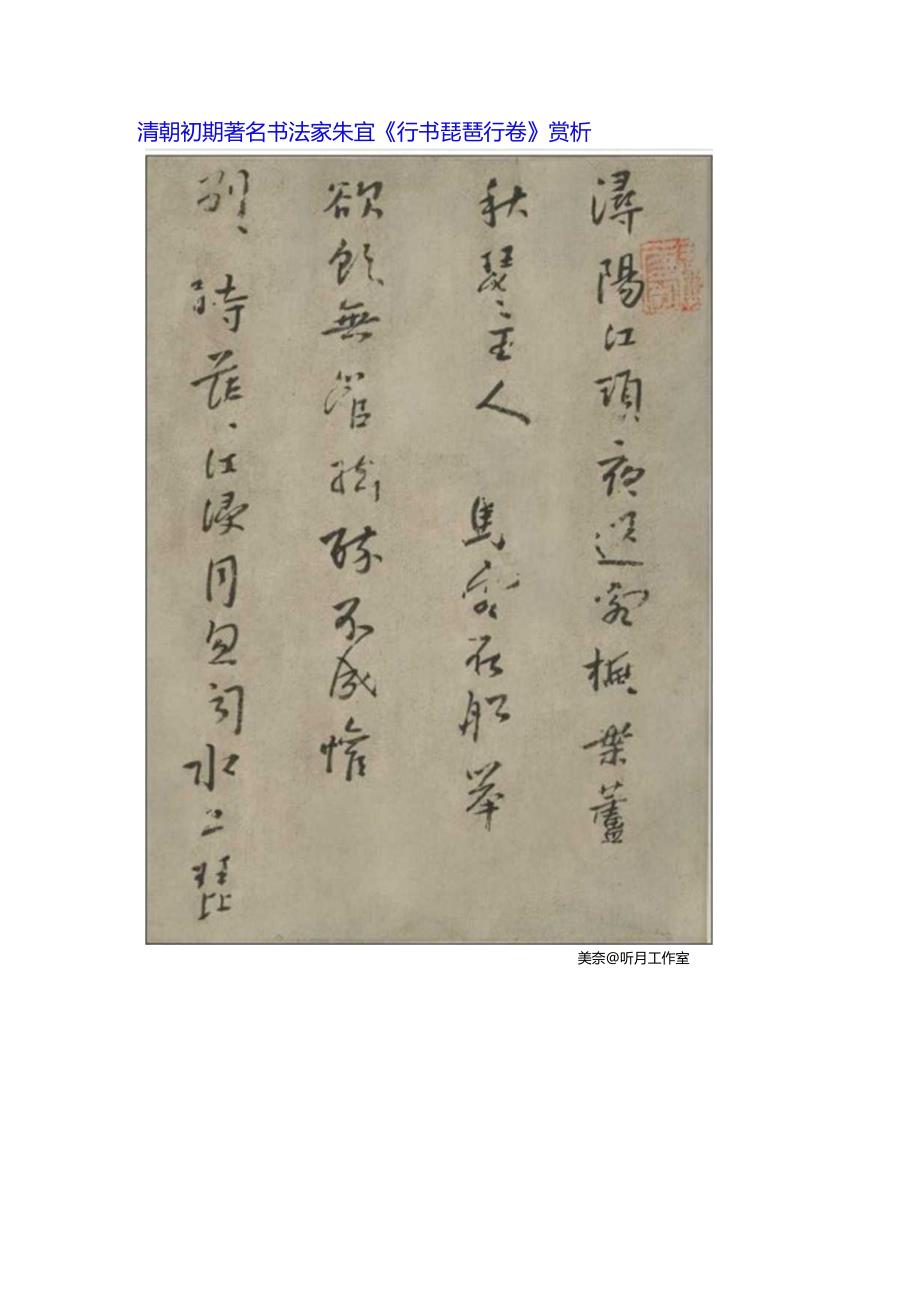 清朝初期著名书法家朱宜《行书琵琶行卷》赏析
潯陽江頭夜送客楓葉蘆
秋瑟〻主人 馬客在船舉
欲飲無管絃醉不成懽
別〻時茫〻江浸月忽聞水上琵
美奈@听月工作室